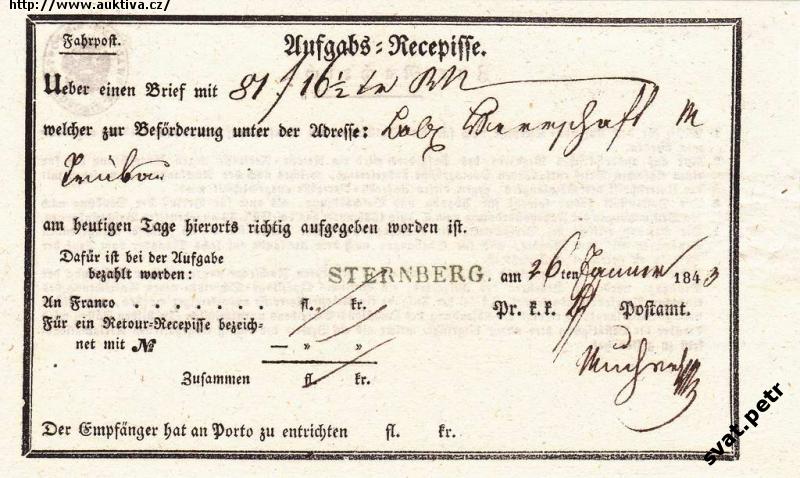 http://www.auktiva.cz/
Fahrpost.
Aufgabs-Recepisse.
Ueber einen Brief mit 81 f 16½
welcher zur Beförderung unter der Adresse: Löbl Herrschaft
am heutigen Tage hierorts richtig aufgegeben worden ist.
Dafür ist bei der Aufgabe
bezahlt worden:
STERNBERG. am 26ten Jänner 1843
An Franco . . . . . . . fl. kr.
Pr. k. k. Postamt.
Für ein Retour-Recepisse bezeich-
net mit № — » »
Zusammen fl. kr.
Der Empfänger hat an Porto zu entrichten fl. kr.
svat.petr